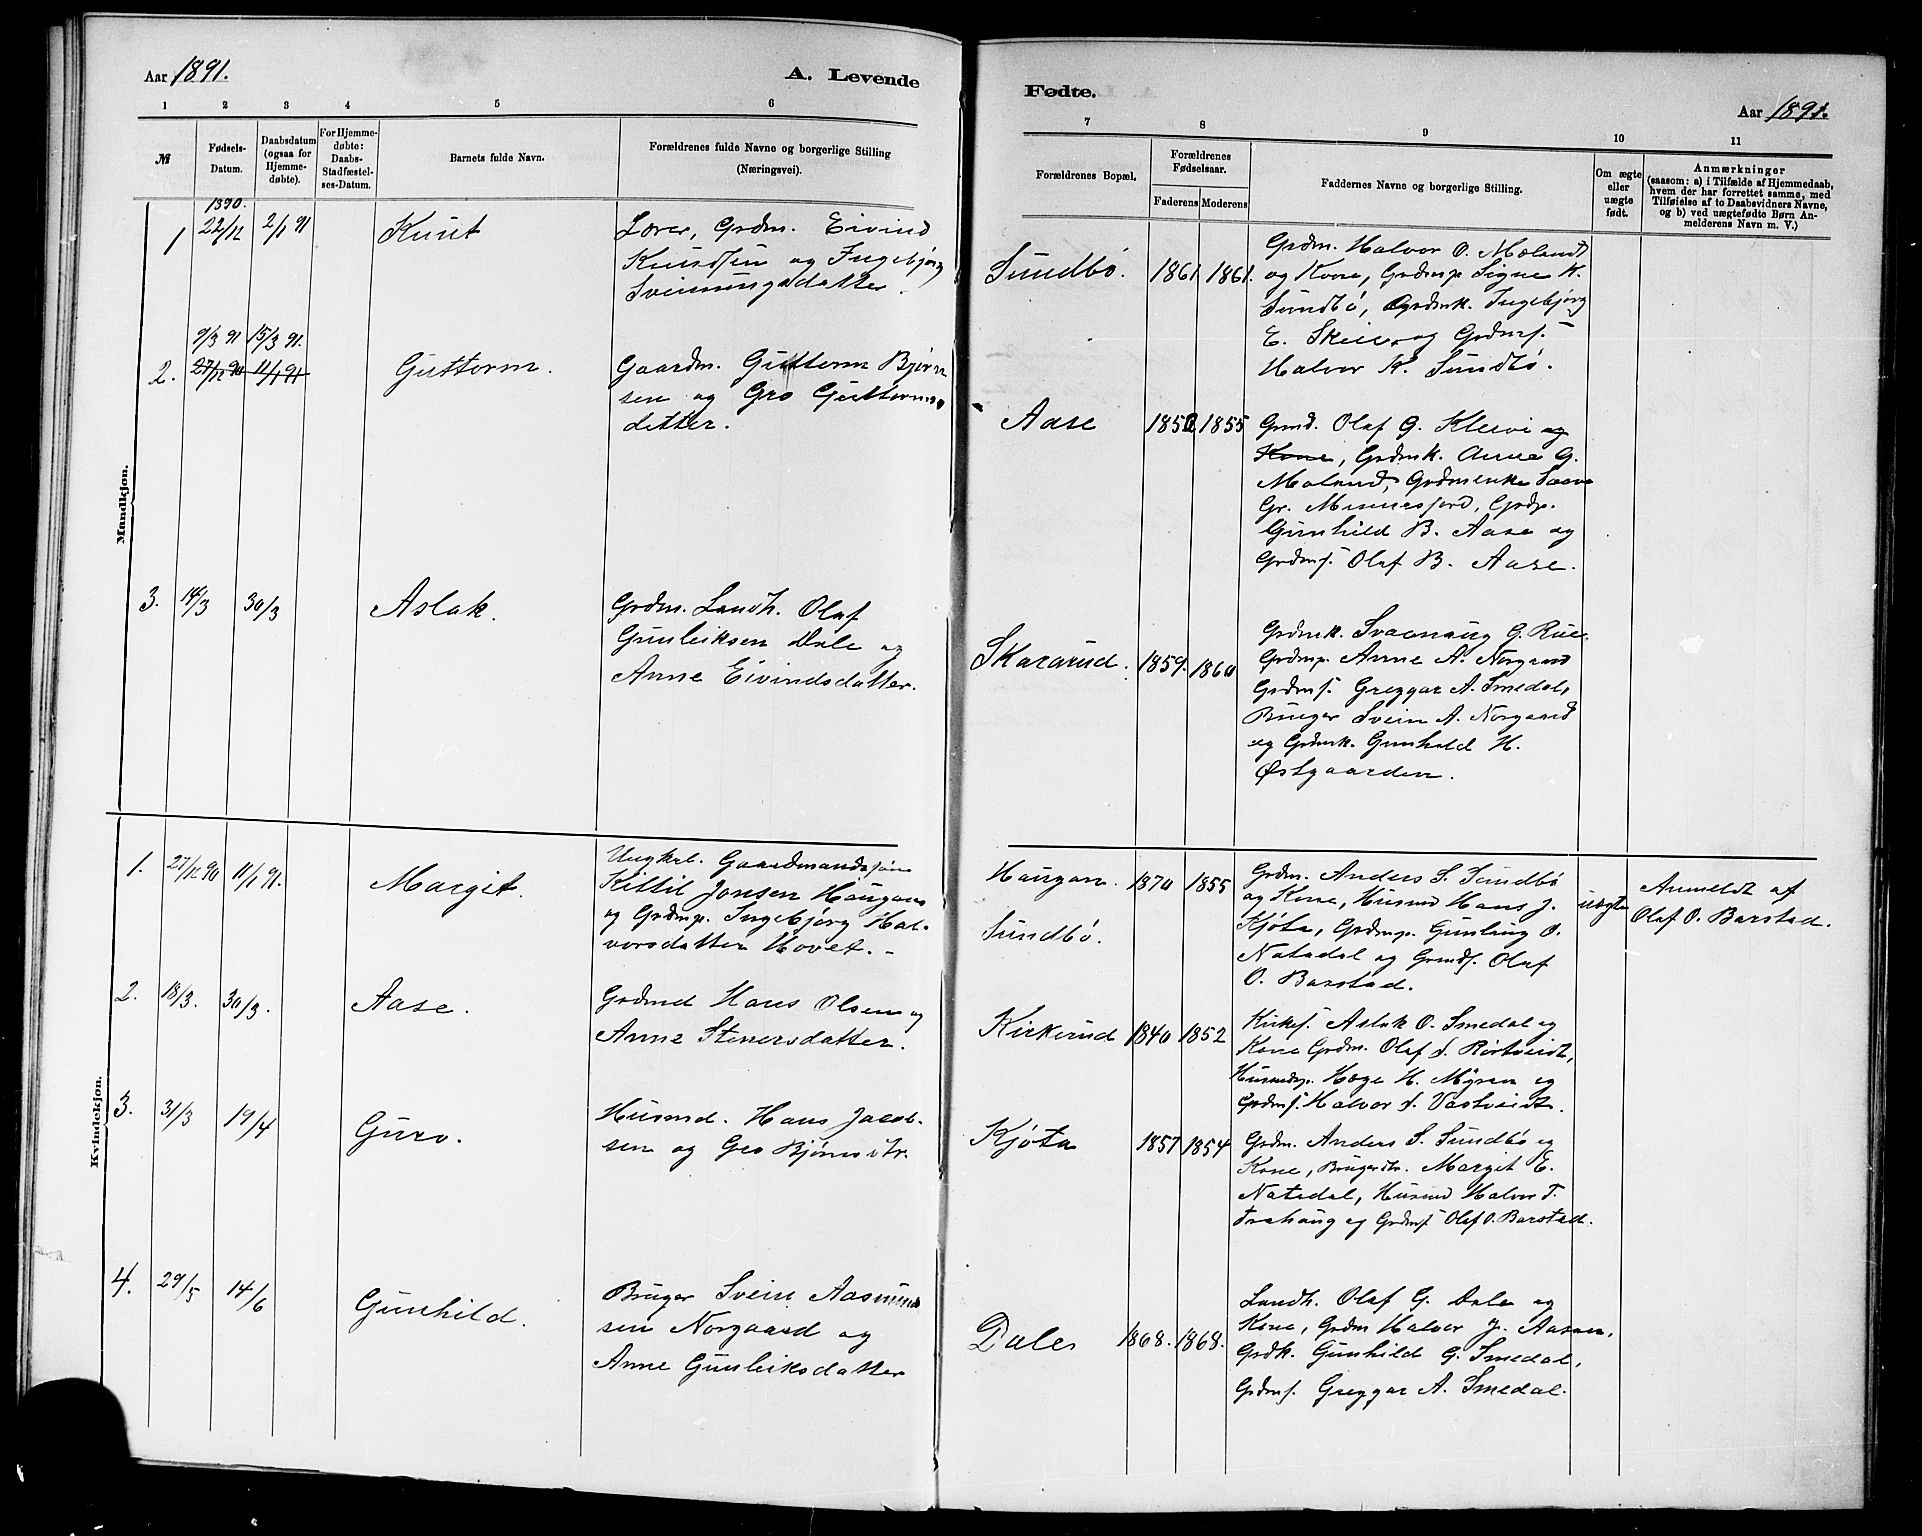 Aar 1891.
A. Levende
1 2 3 4 5 6
№
Fødsels-
Datum.
Daabsdatum
(ogsaa for
Hjemme-
døbte).
For Hjemme-
døbte:
Daabs-
Stadfæstel-
ses-Datum.
Barnets fulde Navn.
Forældrenes fulde Navne og borgerlige Stilling
(Næringsvei).
Mandkjøn.
1890.
1 22/12 2/1 91 Knut
Lærer, Grdm. Eivind
Knudsen og Ingebjørg
Sveinungsdatter.
9/3 91 15/3 91.
2. 27/12 90 11/1 91 Guttorm.
Gaardm. Guttorm Bjørn
sen og Gro Guttorms
datter.
3. 14/3 30/3 Aslak.
Grdm. Landh. Olaf
Gunleiksen Dale og
Anne Eivindsdatter.
Kvindekjøn.
1. 27/12 90 11/1 91. Margit.
Ungkrl. Gaardmandssøn
Kittil Jonsen Haugan
og Grdmp. Ingebjørg Hal-
vorsdatter Hovet.-
2. 18/3. 30/3. Aase.
Grdmd Hans Olsen og
Anne Stenersdatter.
3. 31/3 19/4 Guro.
Husmd. Hans Jacob-
sen og Gro Bjørnsdtr.
4. 29/5 14/6 Gunhild.
Bruger Svein Aasmund
sen Norgaard og
Anne Gunleiksdatter
Fødte.
Aar 1891.
7 8 9 10 11
Forældrenes Bopæl.
Forældrenes
Fødselsaar.
Faderens Moderens
Faddernes Navne og borgerlige Stilling.
Om ægte
eller
uægte
født.
Anmærkninger
(saasom: a) i Tilfælde af Hjemmedaab,
hvem der har forrettet samme, med
Tilføielse af to Daabsvidners Navne,
og b) ved uægtefødte Børn An-
melderens Navn m. V.)
Sundbø. 1861 1861.
Grdm. Halvor O. Mæland
og Kone, Grdmp. Signe K.
Sundbø, Grdmk. Ingebjørg
E. Skeie og Grdms.
Halvor K. Sundbø.
Aase 1855
Grmd. Olaf G. Kleivi og
Kone, Grdmk. Anne G.
Moland, Grdmenke
Gr. Minnesjord, Grdp.
Gunhild B. Aase og
Grdms. Olaf B. Aase.
Skararud. 1859. 1860
Grdmk. Svanaug G. Rue,
Grdmp. Anne A. Norgaard
Grdms. Greggar A. Smedal,
Bruger Svein A. Norgaard
og Grdmk. Gunhild H.
Østgaarden.
Haugan. 1870 1855
Sundbø.
Grdm. Anders S. Sundbø
og Kone, Husmd Hans J.
Kjøta, Grdmp. Gunlaug O.
Natadal og Grmds. Olaf
O. Barstad.
uægte
Anmeldt af
Olaf O. Barstad.
Kirkerud 1840 1852
Kirkes. Aslak O. Smedal og
Kone Grdm. Olaf S. Rortveidt,
Husmdsp. Hæge H. Myran og
Grdms. Halvor S. Vastveidt.
Kjøta 1857 1854
Grdm. Anders S. Sundbø og
Kone, Brugerdtr. Margit E.
Natadal, Husmd Halvor T.
Trahaug og Grdms. Olaf O. Barstad.
Dale 1868. 1868.
Landh. Olaf G. Dale og
Kone, Grdm Halvor J. Aasen,
Grdk. Gunhild G. Smedal,
Grdms. Greggar A. Smedal.